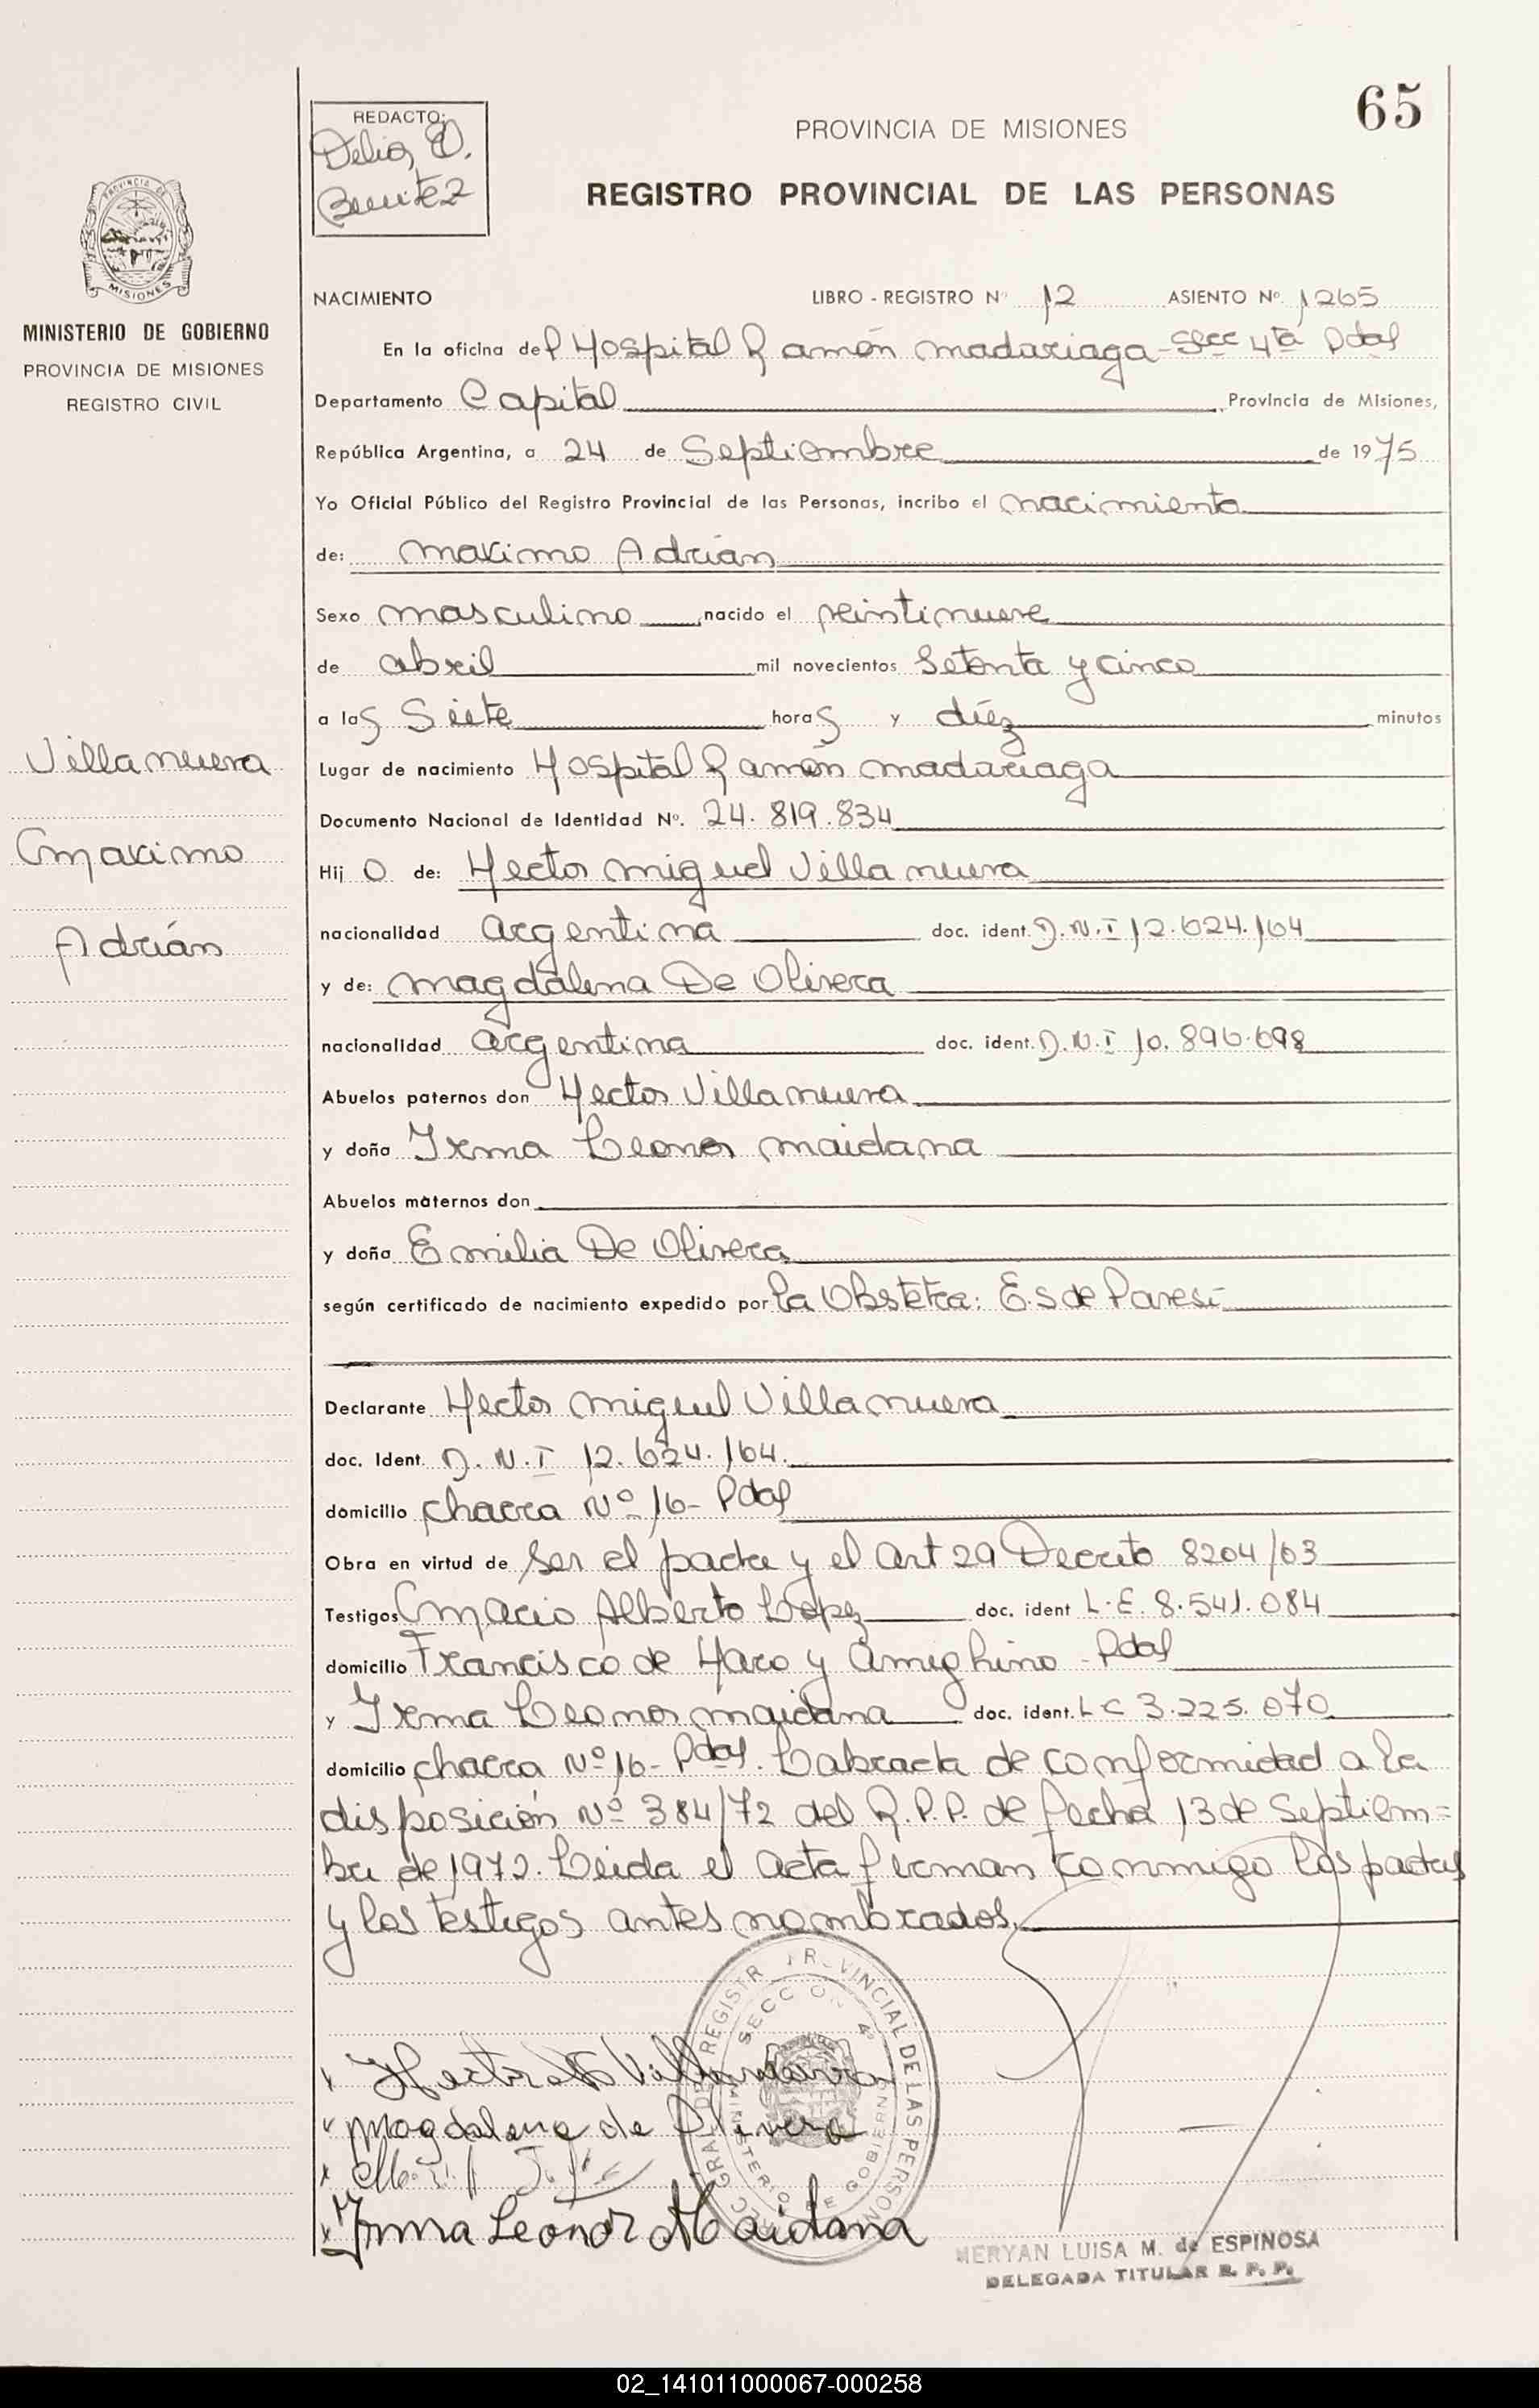 65
REDACTO:
Delia, D.
Benitez
PROVINCIA DE MISIONES
REGISTRO PROVINCIAL DE LAS PERSONAS
PROVINCIA DE
MISIONES
MINISTERIO DE GOBIERNO
PROVINCIA DE MISIONES
REGISTRO CIVIL
NACIMIENTO LIBRO - REGISTRO Nº 12 ASIENTO Nº 1265
En la oficina del Hospital Ramón madariaga - Secc 4ta Pdas
Departamento Capital Provincia de Misiones,
República Argentina, a 24 de Septiembre de 1975
Yo Oficial Público del Registro Provincial de las Personas, incribo el nacimiento
de: maximo Adrián
Sexo masculino nacido el veintinueve
de abril mil novecientos Setenta y cinco
a las Siete horas y diéz minutos
Lugar de nacimiento Hospital Ramón madariaga
Documento Nacional de Identidad Nº. 24.819.834
Hijo de: Hector miguel Villanueva
nacionalidad argentina doc. ident. D.N.I 12.624.164
y de: magdalena De Olivera
nacionalidad argentina doc. ident. D.N.I 10.896.698
Abuelos paternos don Hector Villanueva
y doña Irma Leonor maidana
Abuelos maternos don
y doña Emilia De Olivera
según certificado de nacimiento expedido por la Obstetra: E.S de Paresi
Declarante Hector miguel Villanueva
doc. Ident. D.N.I 12.624.164.
domicilio chacra Nº 16 - Pdas
Obra en virtud de ser el padre y el art 29 Decreto 8204/63
Testigos Macio Alberto López doc. ident L.E. 8.541.084
domicilio Francisco de Haro y ameghino - Pdas
y Irma Leonor maidana doc. ident. L C 3.225.070
domicilio chacra Nº 16 - Pdas. Labrada de conformidad a la
disposición Nº 384/72 del R.P.P. de fecha 13 de Septiem=
bre de 1972. Leida el acta firman conmigo los padres
y los testigos antes nombrados.
Villanueva
Maximo
Adrián
REGISTR PROVINCIAL DE LAS PERSONAS
SECCION 4º
MINISTERIO DE GOBIERNO
Hector M Villanueva
Magdalena de Olivera
Irma Leonor Maidana
MERYAN LUISA M. de ESPINOSA
DELEGADA TITULAR R. P. P.
02_141011000067-000258